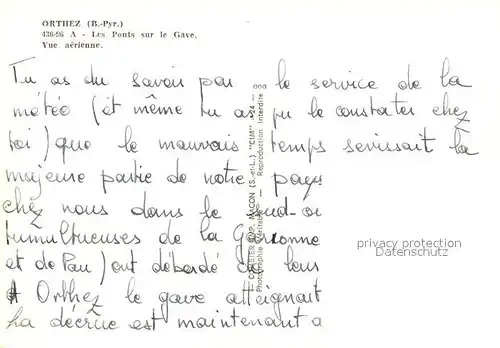 ORTHEZ (B.-Pyr.)
436-96 A - Les Ponts sur le Gave.
Vue aérienne.
Tu as du savoir par le service de la
météo (et même tu as pu le constater chez
toi) que le mauvais temps sevissait la
majeure partie de notre pays
chez nous dans le sud-o
tumultueuses de la Garonne
et de Pau) ont débordé de leur
A Orthez le gave atteignait
ha décrue est maintenant a
COMBIER IMP. MACON (S.-et-L.) "CIM"
Photographie Véritable - Reproduction Interdite
privacy protection
DELCAMPE